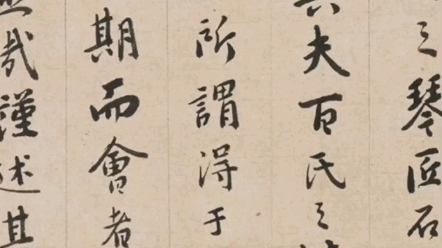 之琴匠石
夫百氏之
所謂得于
期而會者
哉謹述其